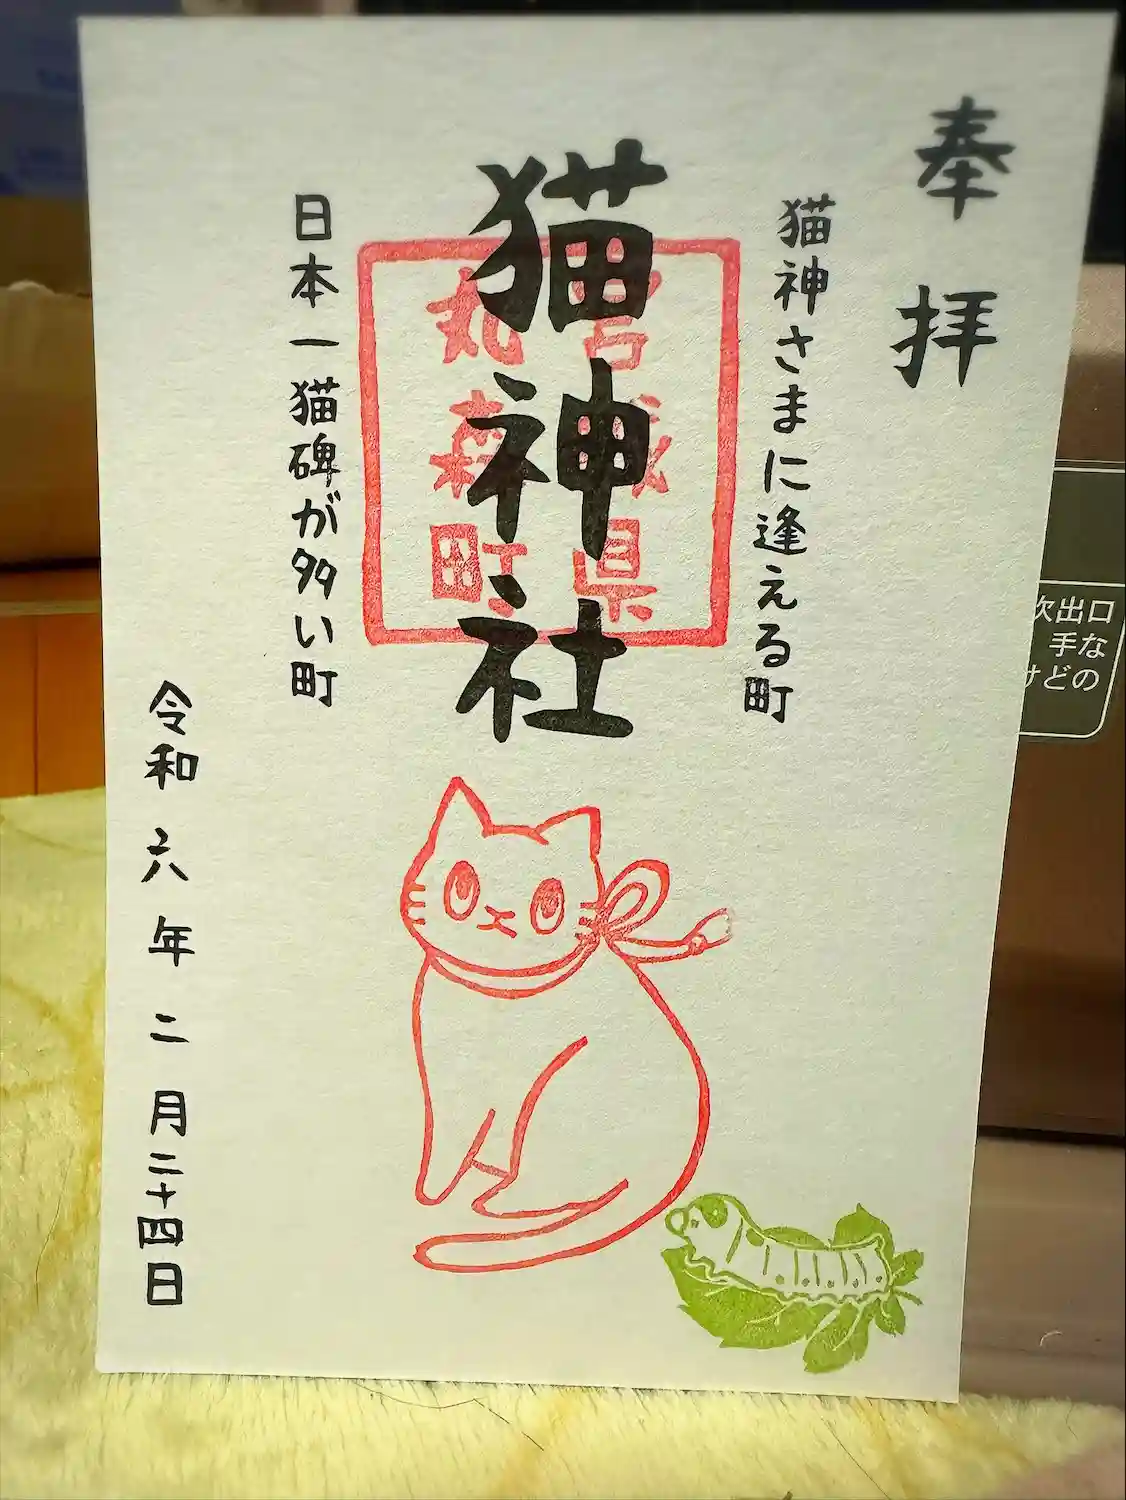 奉拝
猫神さまに逢える町
猫神社
宮城県
丸森町
日本一猫碑が多い町
令和六年二月二十四日
吹出口
手な
けどの